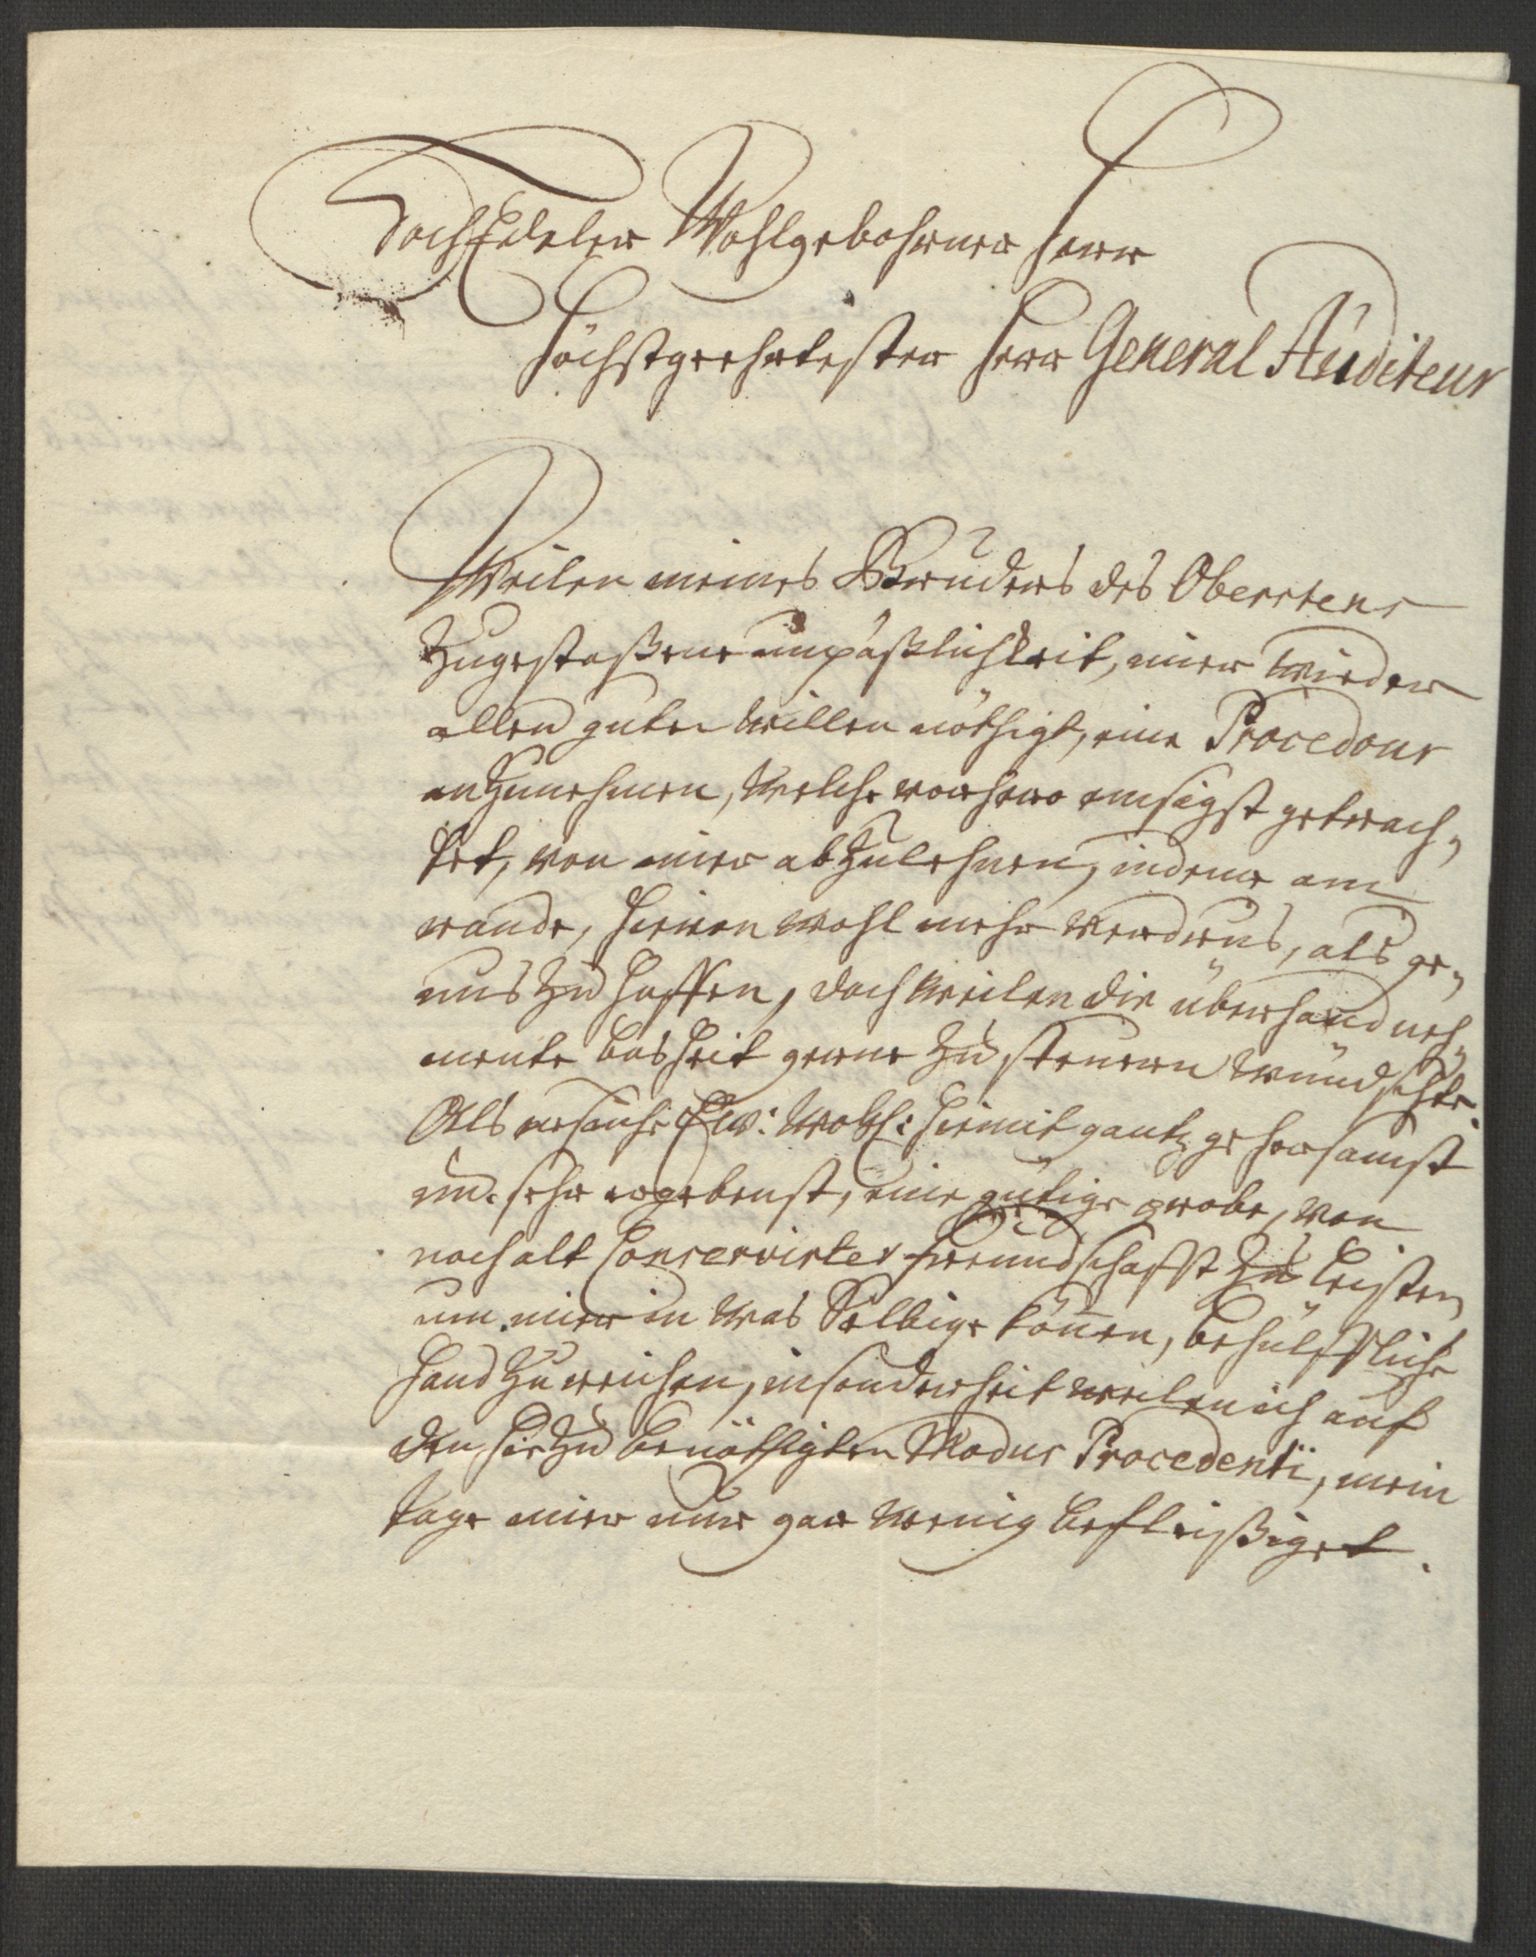 HochEdeler Wohlgebohrner Herr
Höchstgeehrtester Herr General Auditeur
Weilen meines Bruders des Oberstens
zugestoßene unpäßlichkeit, mier wieder
allen guten willen nöthigt, eine Procedour
anzunehmen, welche vorhero emsigst getrach,
tet, von mier abzulehnen, indeme am
rande, hievon wohl mehr verdrus, als ge,
nus zu hoffen, doch weilen die überhand neh,
mente bosheit gerne zu steuern wündschte.
Als ersuche Ew: Wohl: hiemit gantz gehorsamst
und sehr ergebenst, eine gütige probe, von
noch alt conservirter freundschafft zu leisten
um mier in was Selbige können, behülffliche
hand zu reichen, insonderheit weilen ich auf
den hiezu benöthigten Modus Procedenti, mein
tage mier nur gar wenig befleißiget.